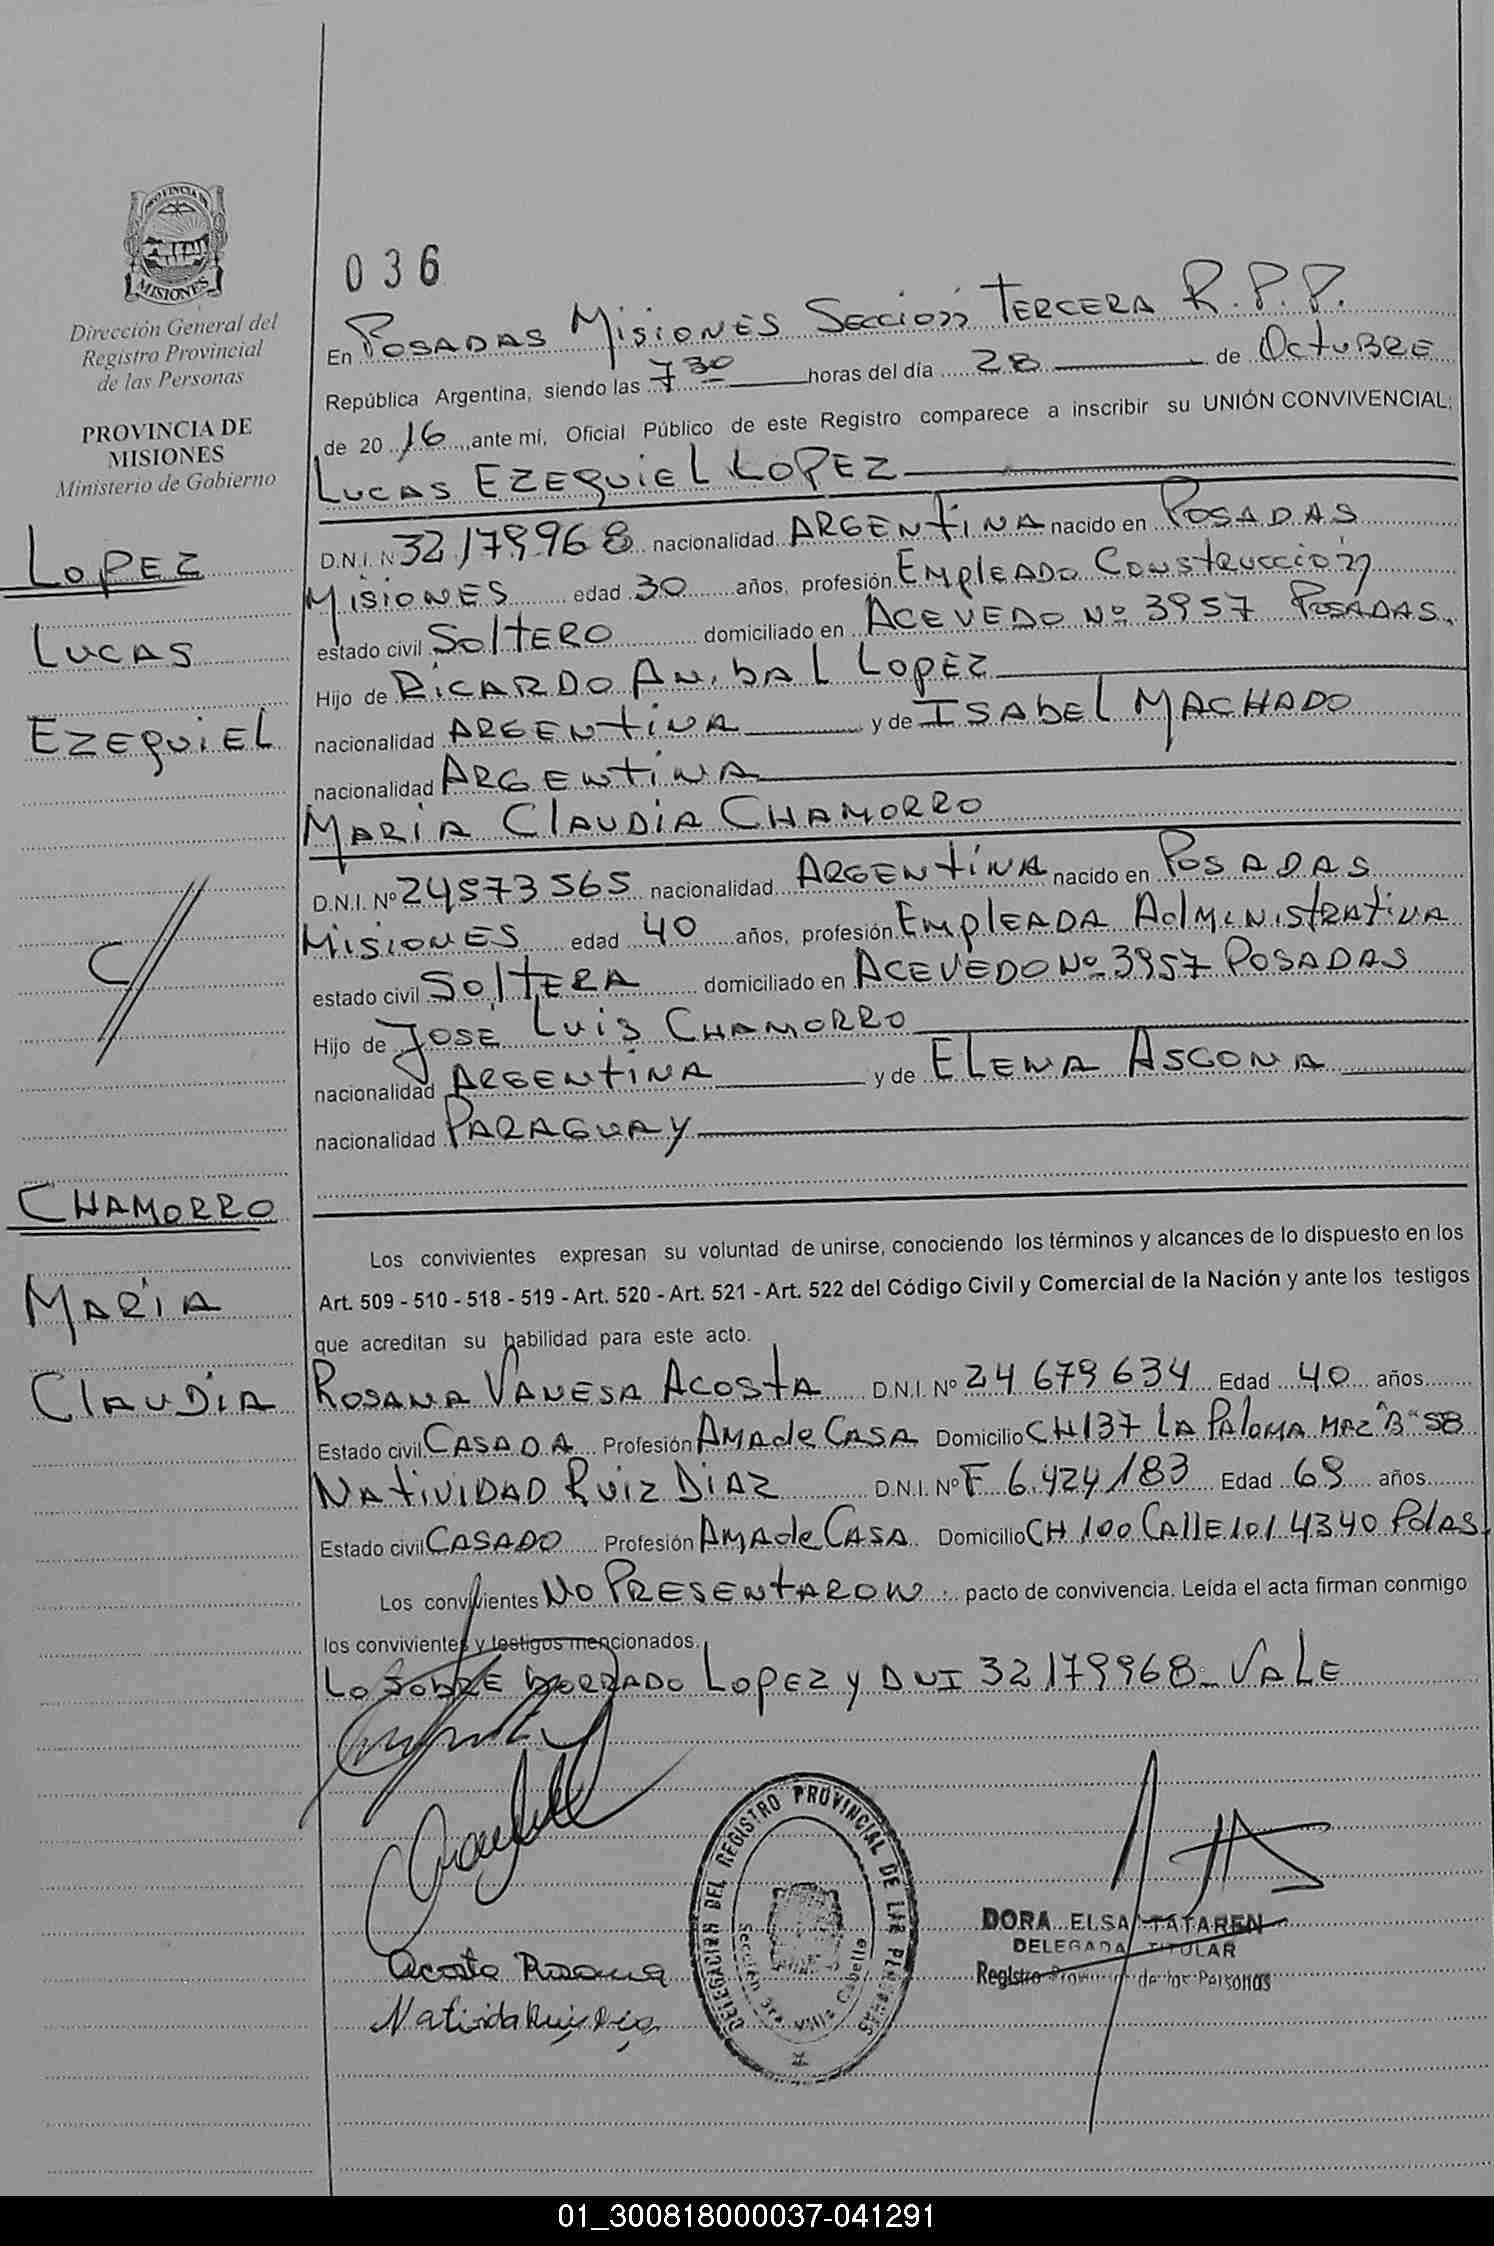 PROVINCIA DE
MISIONES
Dirección General del
Registro Provincial
de las Personas
PROVINCIA DE
MISIONES
Ministerio de Gobierno
LOPEZ
LUCAS
EZEQUIEL
C//
CHAMORRO
MARIA
CLAUDIA
036
En POSADAS MISIONES SECCION TERCERA R.P.P.
República Argentina, siendo las 7 30 horas del día 28 de OCTUBRE
de 20 16 ante mí, Oficial Público de este Registro comparece a inscribir su UNIÓN CONVIVENCIAL:
LUCAS EZEQUIEL LOPEZ
D.N.I. N 32179968 nacionalidad ARGENTINA nacido en POSADAS
MISIONES edad 30 años, profesión EMPLEADO CONSTRUCCIÓN
estado civil SOLTERO domiciliado en ACEVEDO Nº 3957 POSADAS.
Hijo de RICARDO ANIBAL LOPEZ
nacionalidad ARGENTINA y de ISABEL MACHADO
nacionalidad ARGENTINA
MARIA CLAUDIA CHAMORRO
D.N.I. Nº 24573565 nacionalidad ARGENTINA nacido en POSADAS
MISIONES edad 40 años, profesión EMPLEADA ADMINISTRATIVA
estado civil SOLTERA domiciliado en ACEVEDO Nº 3957 POSADAS
Hijo de JOSE LUIS CHAMORRO
nacionalidad ARGENTINA y de ELENA ASCONA
nacionalidad PARAGUAY
Los convivientes expresan su voluntad de unirse, conociendo los términos y alcances de lo dispuesto en los
Art. 509 - 510 - 518 - 519 - Art. 520 - Art. 521 - Art. 522 del Código Civil y Comercial de la Nación y ante los testigos
que acreditan su habilidad para este acto.
ROSANA VANESA ACOSTA D.N.I. Nº 24 679 634 Edad 40 años
Estado civil CASADA Profesión AMA de CASA Domicilio CH 137 LA PALOMA MAZ "B" 58
NATIVIDAD RUIZ DIAZ D.N.I. Nº F 6.424183 Edad 69 años
Estado civil CASADO Profesión AMA de CASA Domicilio CH 100 CALLE 101 4340 PDAS.
Los convivientes NO PRESENTARON pacto de convivencia. Leída el acta firman conmigo
los convivientes y testigos mencionados.
LO SOBRE BORRADO LOPEZ Y DNI 32179968- VALE
DELEGACION DEL REGISTRO PROVINCIAL DE LAS PERSONAS
Sección 3ra. Villa Cabello
Acosta Rosana
Natividad Ruiz Diaz
DORA ELSA TATAREN
DELEGADA TITULAR
Registro Provincial de las Personas
01_300818000037-041291